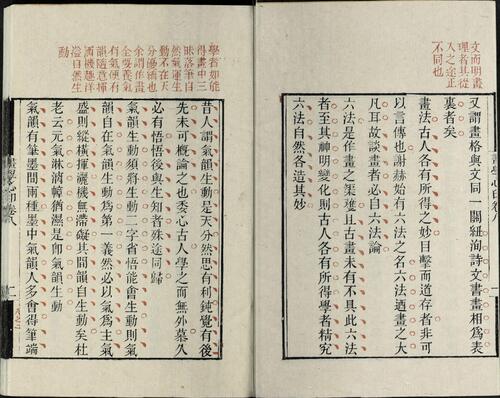 文而明畫
理者其從
入之途正
不同也
又謂畫格與文同一關紐洵詩文書畫相為表
裏者矣
畫法古人各有所得之妙目擊而道存者非可
以言傳也謝赫始有六法之名六法迺畫之大
凡耳故談畫者必自六法論
六法是作畫之榘矱且古畫未有不具此六法
者至其神明變化則古人各有所得學者精究
六法自然各造其妙
學者如能
得畫中三
昧落筆自
然氣運生
動不在天
分優絀也
余謂作畫
全要養氣
有氣便有
韻隨意揮
洒機趣洋
溢自然生
動
昔人謂氣韻生動是天分然思有利鈍覺有後
先未可概論之也委心古人學之而無外慕久
必有悟悟後與生知者殊途同歸
氣韻生動須將生動二字省悟能會生動則氣
韻自在氣韻生動為第一義然必以氣為主氣
盛則縱橫揮灑機無滯礙其間韻自生動矣杜
老云元氣淋漓幛猶濕是即氣韻生動
氣韻有筆墨間兩種墨中氣韻人多會得筆端
畫學心印卷八